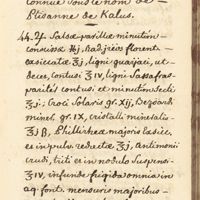 connue sous le nom de
Ptisanne de Kalus.
44. ♃. Salsæ-parillæ minutim
concisæ ℥ij, Radjciis florent-
exsiccatæ ℥j, ligni guaijaci, ut
decet, contusi ℥iv, ligni Sassafras
pariles contusi et minutim secti
℥j; Croci Solaris gr. xij, Bezoardi
miner. gr. ix, cristalli mineralis
ʒj ß, Phillirheæ majoris exsicc.
et in pulv. redactæ ʒj, Antimoni
crudi, triti et in nodulo suspensi
℥iv, infunde frigida omnia in
aq. font. mensuris majoribus